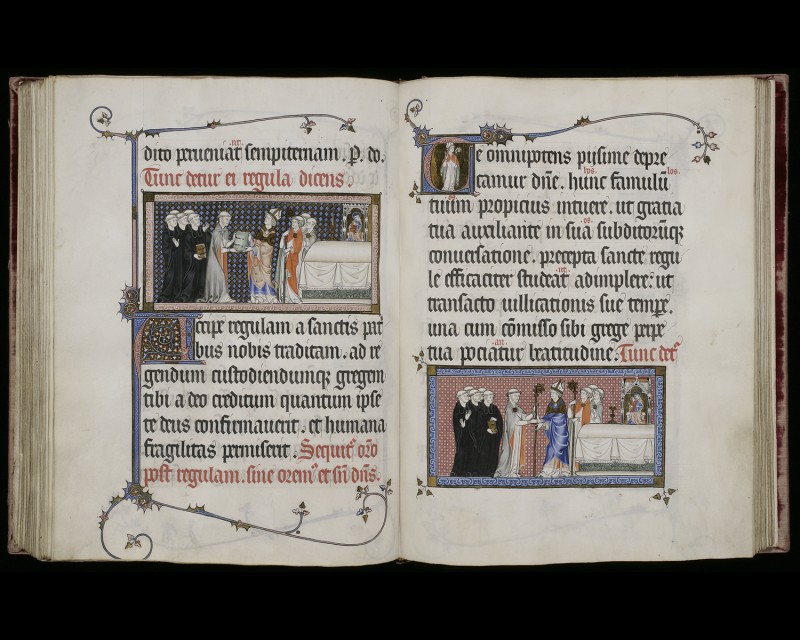 dito perueniat sempiternam. P. do.
Tunc detur ei regula dicens.
Accipe regulam a sanctis pat
bus nobis traditam. ad re
gendum custodiendumque gregem
tibi a deo creditum quantum ipse
te deus confirmauerit. et humana
fragilitas permiserit. Sequit' oro
post regulam. sine orem' et sn dns.
Te omnipotens pijssime depre
camur dne. hunc famulu
tuum propicius intuere. ut gratia
tua auxiliante in sua subditorumq
conuersatione. precepta sancte regu
le efficaciter studeat adimplere. ut
transacto uillicationis sue tempe.
una cum comisso sibi grege perpe
tua pociatur beatitudine. Tunc det'